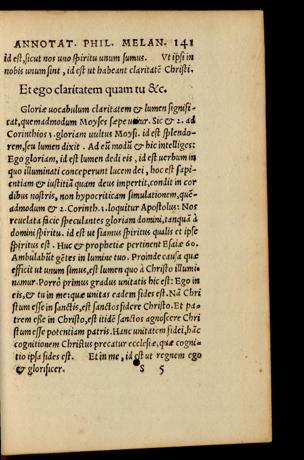 ANNOTAT. PHIL. MELAN. 141
id est, sicut nos uno spiritu unum sumus. Vt ipsi in
nobis unum sint, id est ut habeant claritatē Christi.
Et ego claritatem quam tu &c.
Gloriæ uocabulum claritatem & lumen signifi-
cat, quemadmodum Moyses sæpe utitur. Sic & 2. ad
Corinthios 3. gloriam uultus Moysi. id est splendo-
rem, seu lumen dixit. Ad eū modū & hic intelliges:
Ego gloriam, id est lumen dedi eis, id est uerbum in
quo illuminati conceperunt lucem dei, hoc est sapi-
entiam & iustitiā quam deus impertit, condit in cor
dibus nostris, non hypocriticam simulationem, quē-
admodum & 2. Corinth. 3. loquitur Apostolus: Nos
reuelata facie speculantes gloriam domini, tanquā à
domini spiritu. id est ut siamus spiritus qualis et ipse
spiritus est. Huc & prophetiæ pertinent Esaiæ 60.
Ambulabūt gētes in lumine tuo. Proinde causa quæ
efficit ut unum simus, est lumen quo à Christo illumi
namur. Porrò primus gradus unitatis hic est: Ego in
eis, & tu in me: quæ unitas eadem fides est. Nā Chri
stum esse in sanctis, est sanctos fidere Christo. Et pa
trem esse in Christo, est itidē sanctos agnoscere Chri
stum esse potentiam patris. Hanc unitatem fidei, hāc
cognitionem Christus precatur ecclesiæ, quæ cogni-
tio ipsa fides est. Et in me, id est ut regnem ego
& glorificer. S 5